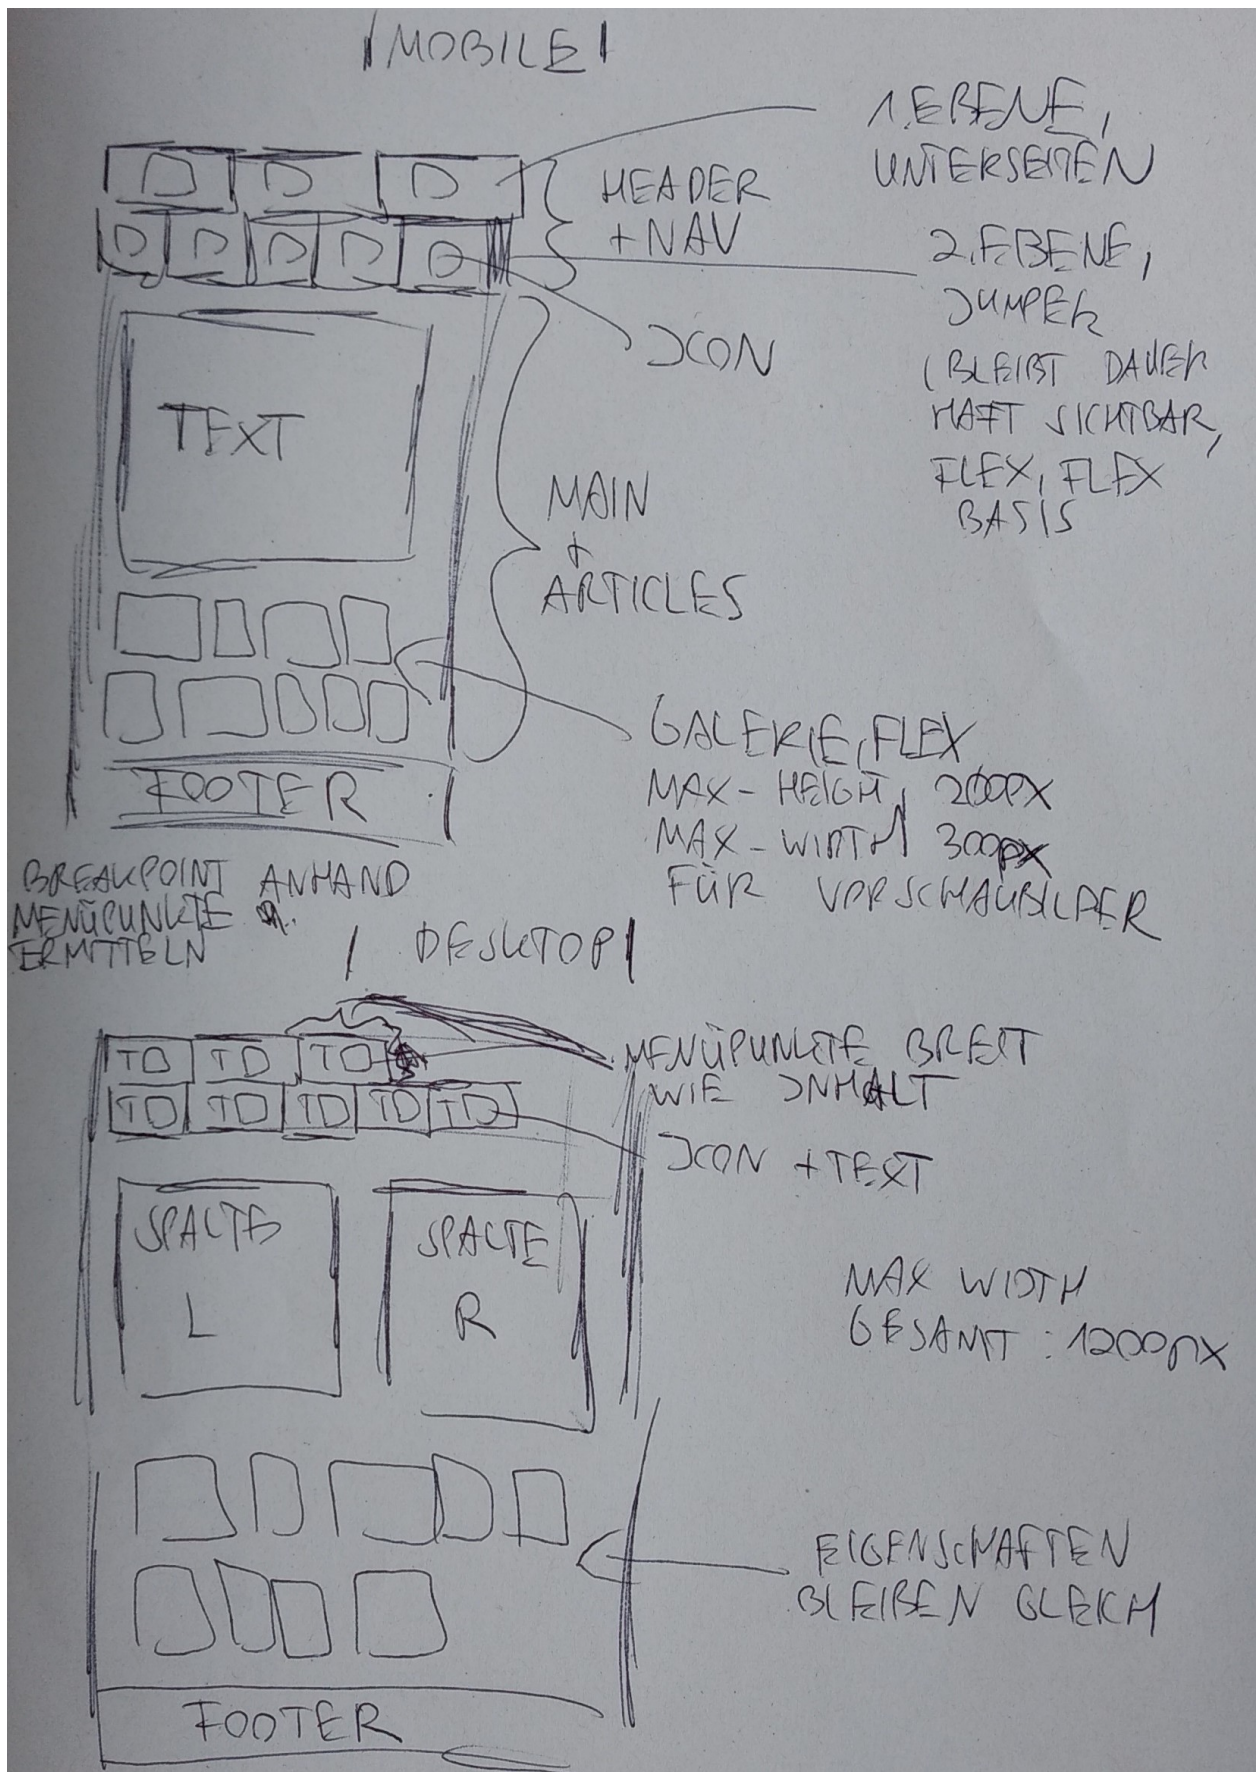 MOBILE
1. EBENE,
UNTERSEITEN
HEADER
+ NAV
2. EBENE,
JUMPER
(BLEIBT DAUER
HAFT SICHTBAR,
FLEX, FLEX
BASIS
ICON
TEXT
MAIN
+
ARTICLES
GALERIE, FLEX
MAX-HEIGHT 200PX
MAX-WIDTH 300PX
FÜR VORSCHAUBILDER
FOOTER
BREAKPOINT ANHAND
MENÜPUNKTE
ERMITTELN
DESKTOP
T T T
T T T T T
MENÜPUNKTE BREIT
WIE INHALT
ICON + TEXT
SPALTE
L
SPALTE
R
MAX WIDTH
GESAMT : 1200PX
EIGENSCHAFTEN
BLEIBEN GLEICH
FOOTER